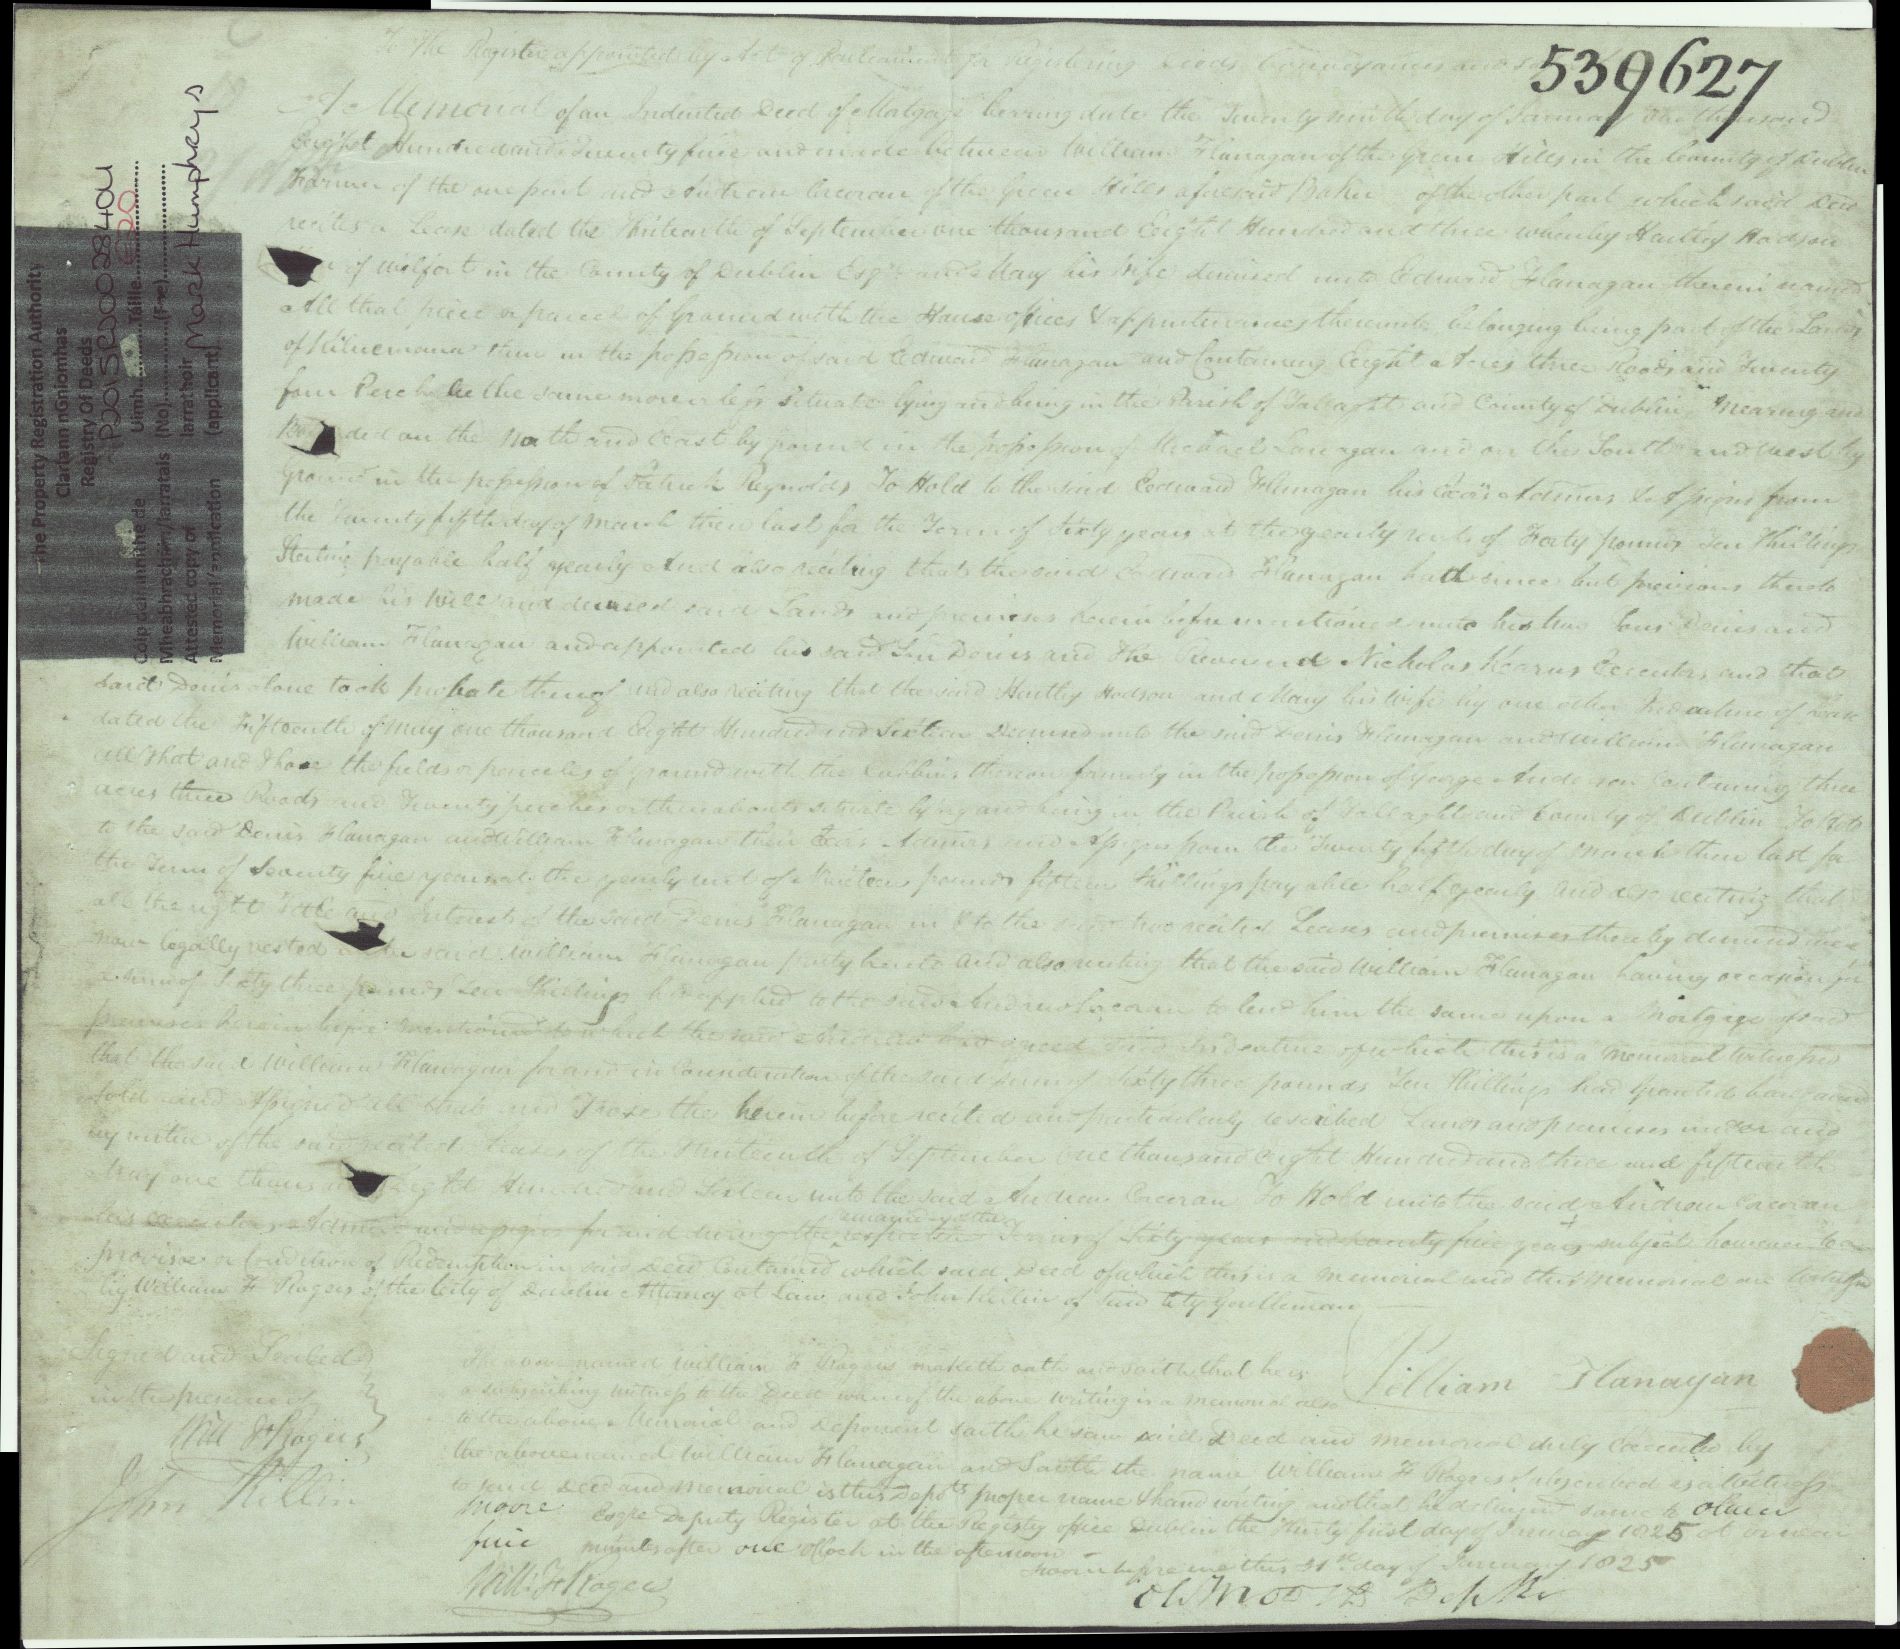 539627
To the Register appointed by Act of Parliament for Registering Deeds Conveyances and so
A Memorial of an Indented Deed of Matgage bearing date the Twenty ninth day of January One thousand
Eight Hundred and Twenty five and made between William Flanagan of the Green Hills in the County of Dublin
Farmer of the one part and Andrew Corcoran of the Green Hills aforesaid Baker of the other part which said Deed
recites a Lease dated the thirteenth of September one thousand Eight Hundred and three whereby Hartley Hodson
of in the County of Dublin Esqr. and Mary his Wife demised unto Edward Flanagan therein named
All that piece or parcel of Ground with the House offices & appurtenances thereunto belonging being part of the Lands
of Kilnemana then in the possession of said Edward Flanagan and Containing Eight Acres three Roods and Twenty
four Perches be the same more or less situate lying and being in the Parish of Tallaght and County of Dublin Mearing and
Bounded on the North and East by ground in the possession of Michael Lanagan and on the South and West by
Ground in the possession of Patrick Reynolds To Hold to the said Edward Flanagan his Exors Admors & Assigns from
the Twenty fifth day of March then last for the Term of Sixty years at the yearly rent of Forty pounds Ten Shillings
Sterling payable half yearly And also reciting that the said Edward Flanagan had since but previous thereto
made his Will and devised said Lands and premises herein before mentioned unto his two Sons Denis and
William Flanagan and appointed his said Son Denis and the Reverend Nicholas Kearns Executors and that
said Denis alone took probate thereof and also reciting that the said Hartley Hodson and Mary his wife by one other Indenture of Lease
dated the Fifteenth of May one thousand Eight Hundred and Sixteen Demised unto the said Denis Flanagan and William Flanagan
All that and those the fields or parcels of ground with the Cabbins thereon formerly in the possession of George Anderson Containing three
acres three Roods and Twenty perches or thereabouts situate lying and being in the Parish of Tallaght and County of Dublin To Hold
to the said Denis Flanagan and William Flanagan their Exors Admors and Assigns from the Twenty fifth day of March then last for
the Term of Seventy five years at the yearly rent of Nineteen pounds fifteen Shillings payable half yearly and also reciting that
all the right Title and Interest of the said Denis Flanagan in & to the said two recited Leases and premises thereby demised were
now legally vested in the said William Flanagan party hereto and also reciting that the said William Flanagan having occasion for
a sum of Sixty three pounds Ten Shillings had applied to the said Andrew Corcoran to lend him the same upon a Mortgage of said
premises herein before mentioned to which the said Andrew had agreed said Indenture of which this is a Memorial Witnesses
that the said William Flanagan for and in Consideration of the said sum of Sixty three pounds Ten Shillings had Granted bargained
Sold and Assigned all that and those the herein before recited and particularly described Lands and premises under and
by virtue of the said recited Leases of the thirteenth of September One thousand Eight Hundred and three and fifteenth
May one thousand Eight Hundred and Sixteen unto the said Andrew Corcoran To Hold unto the said Andrew Corcoran
his executors Admors and assigns for and during the respective remainder of the Terms of Sixty years and seventy five years subject however to a
proviso or Condition of Redemption in said Deed Contained which said Deed of which this is a Memorial and this Memorial are Witnessed
by William F Rogers of the City of Dublin Attorney at Law and John Killin of said City Gentleman
Signed and Sealed
in the presence of
Will F Rogers
John Killin
William Flanagan
The above named William F Rogers maketh oath and saith that he is
a subscribing witness to the Deed whereof the above writing is a memorial also
to the above Memorial and Deponent saith he saw said Deed and Memorial duly Executed by
the abovenamed William Flanagan and Saith the name William F Rogers subscribed as a Witness
to said Deed and Memorial is this Depts proper name & hand writing and that he delivered same to Oliver
Moore Esqre Deputy Register at the Registry office Dublin the thirty first day of January 1825 at or near
five minutes after one oClock in the afternoon
Sworn before me this 31st day of January 1825
Will F Rogers
The Property Registration Authority
Clárlann nGníomhas
Registry Of Deeds
Cóip dheimhnithe de Uimh. Táille
Mheabhrachán/Iarratais (No) (Fee)
Attested copy of Iarrathóir
Memorial/application (applicant)
€20
Mark Humphrys